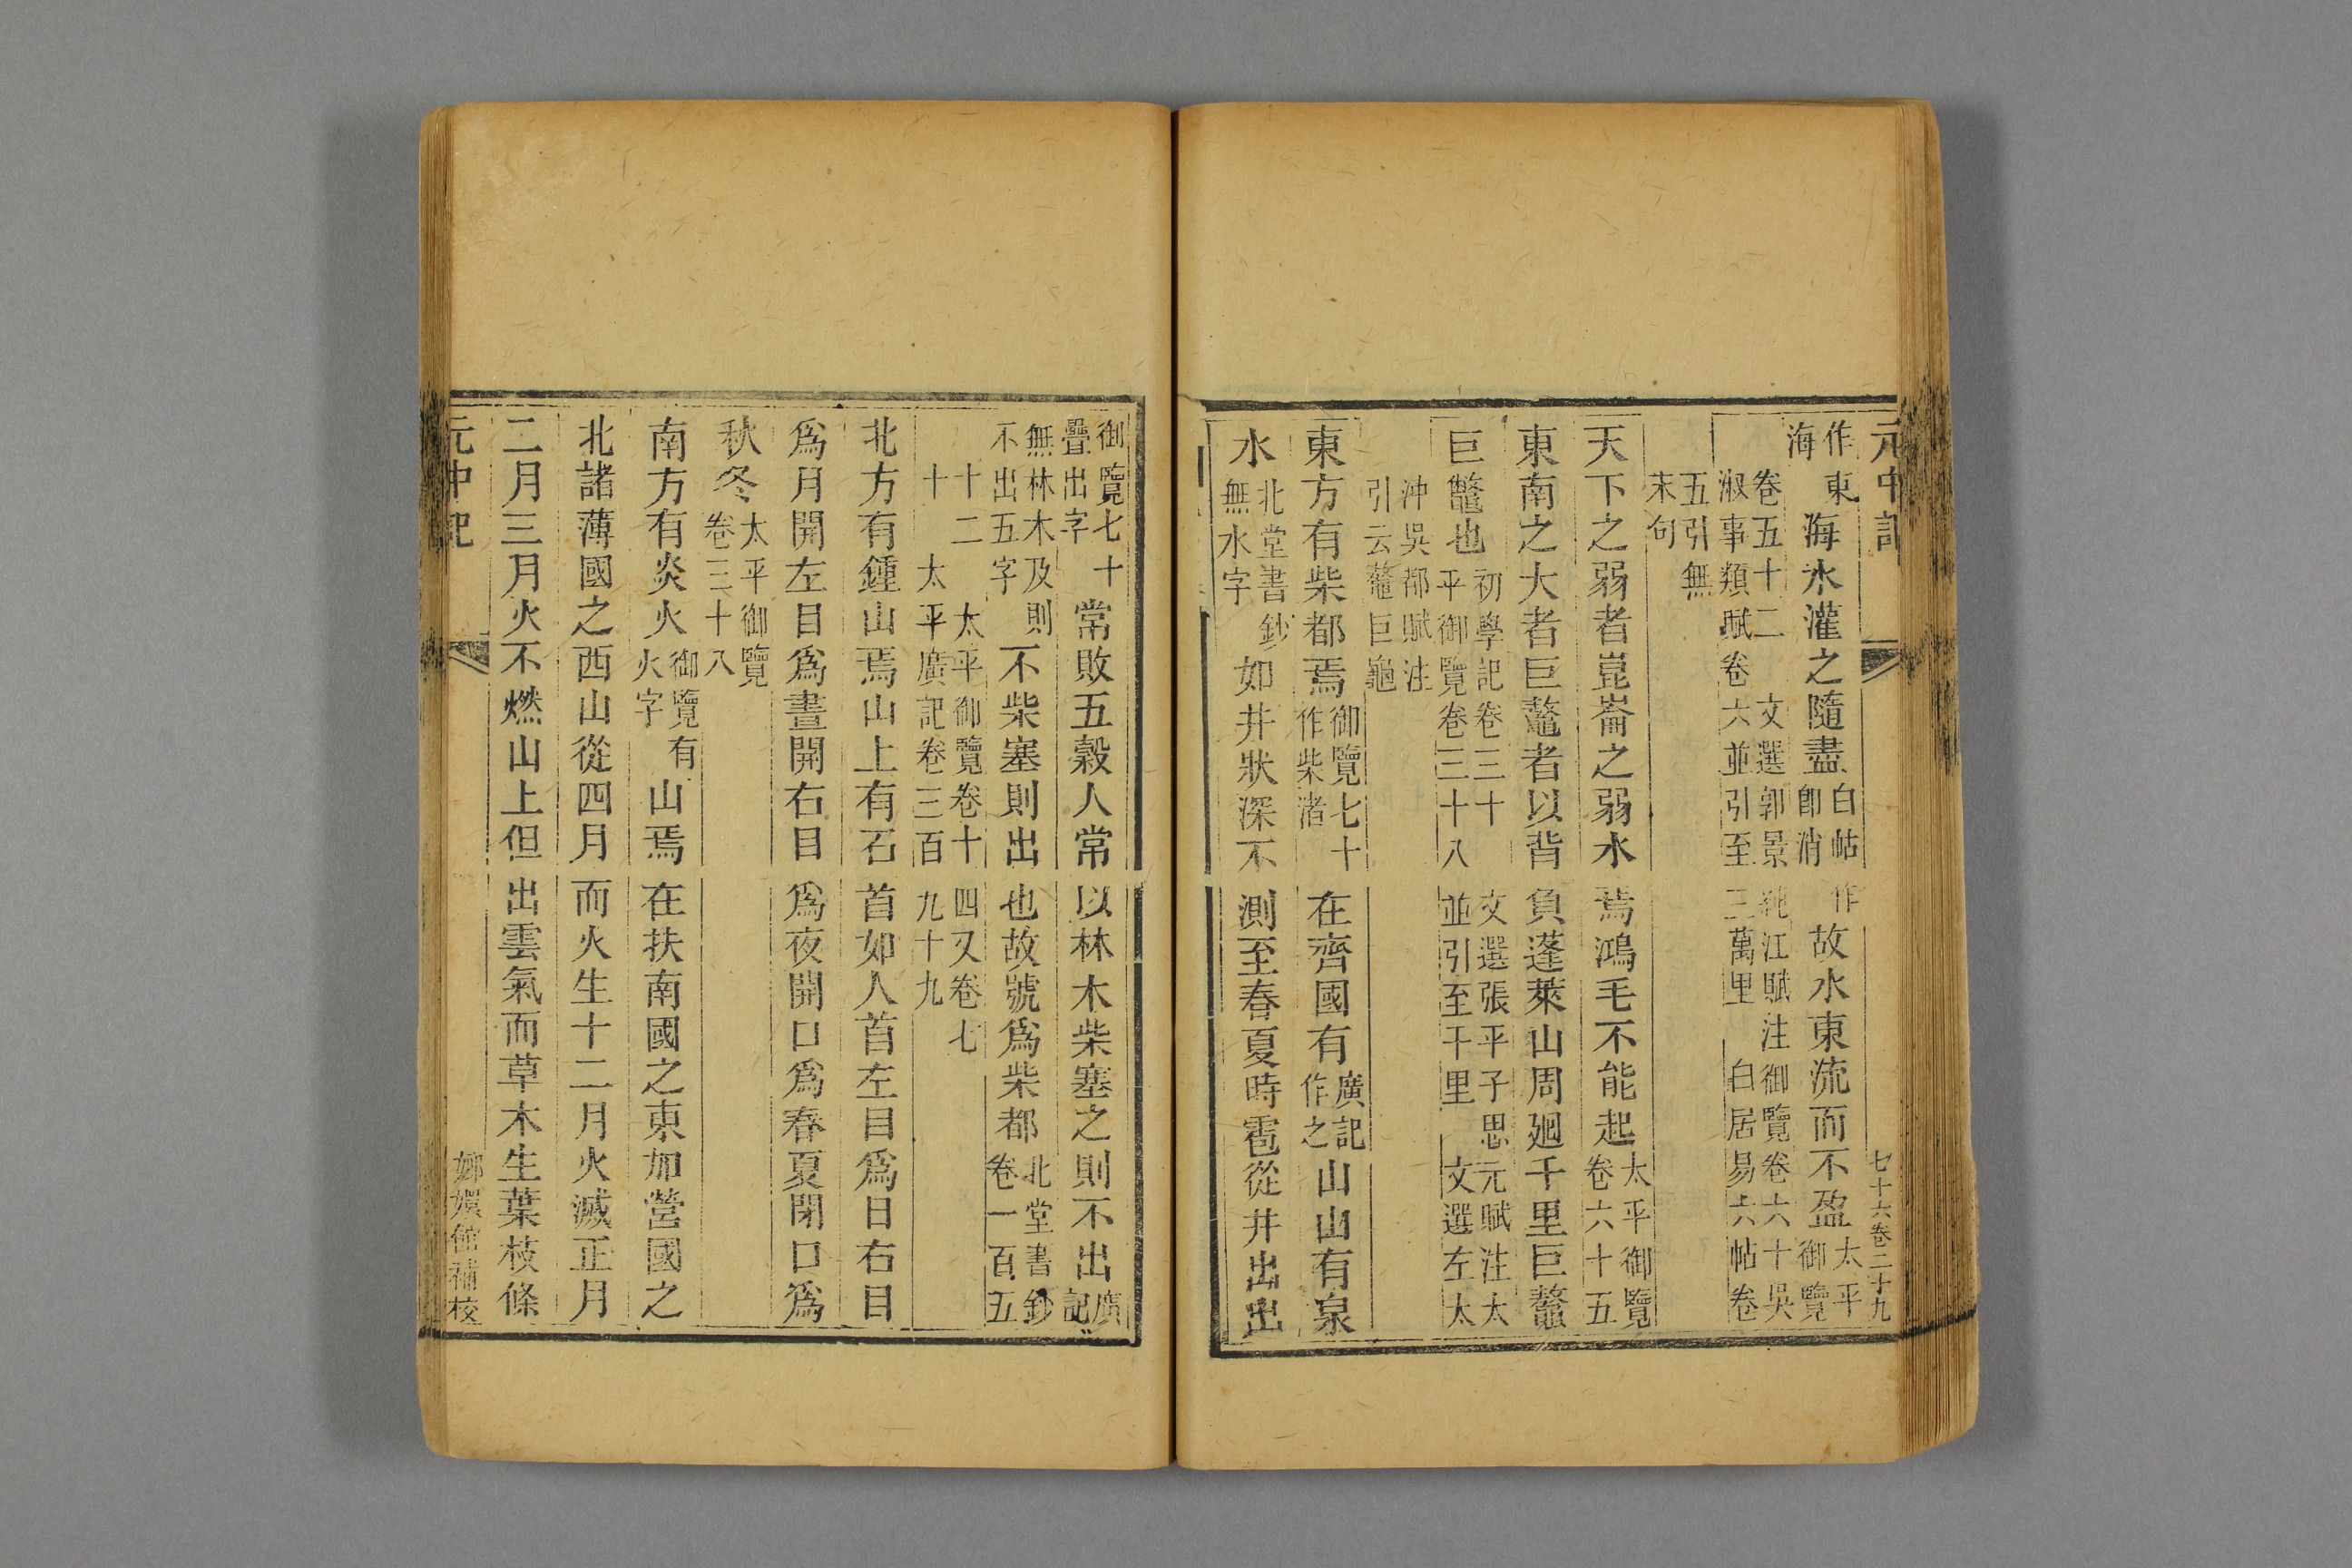 元中記
七十六卷二十九
作東海海水灌之隨盡白帖作卽消故水東流而不盈太平御覽
卷五十二文選郭景純江賦注御覽卷六十吳淑事類賦卷六並引至三萬里白居易六帖卷
五引無末句
天下之弱者崑崙之弱水焉鴻毛不能起太平御覽卷六十五
東南之大者巨鼇者以背負蓬萊山周廻千里巨鼇
巨鼇也初學記卷三十文選張平子思元賦注太平御覽卷三十八並引至千里文選左太
沖吳都賦注引云鼇巨龜
東方有柴都焉御覽七十作柴渚在齊國有廣記作之山山有泉
水北堂書鈔無水字如井狀深不測至春夏時雹從井出出
御覽七十疊出字常敗五穀人常以林木柴塞之則不出廣記
無林木及則不出五字不柴塞則出也故號爲柴都北堂書鈔卷一百五
十二太平御覽卷十四又卷七十太平廣記卷三百九十九
北方有鍾山焉山上有石首如人首左目爲日右目
爲月開左目爲晝開右目爲夜開口爲春夏閉口爲
秋冬太平御覽卷三十八
南方有炎火御覽有火字山焉在扶南國之東加營國之
北諸薄國之西山從四月而火生十二月火滅正月
二月三月火不燃山上但出雲氣而草木生葉枝條
元中記
嫏嬛館補校